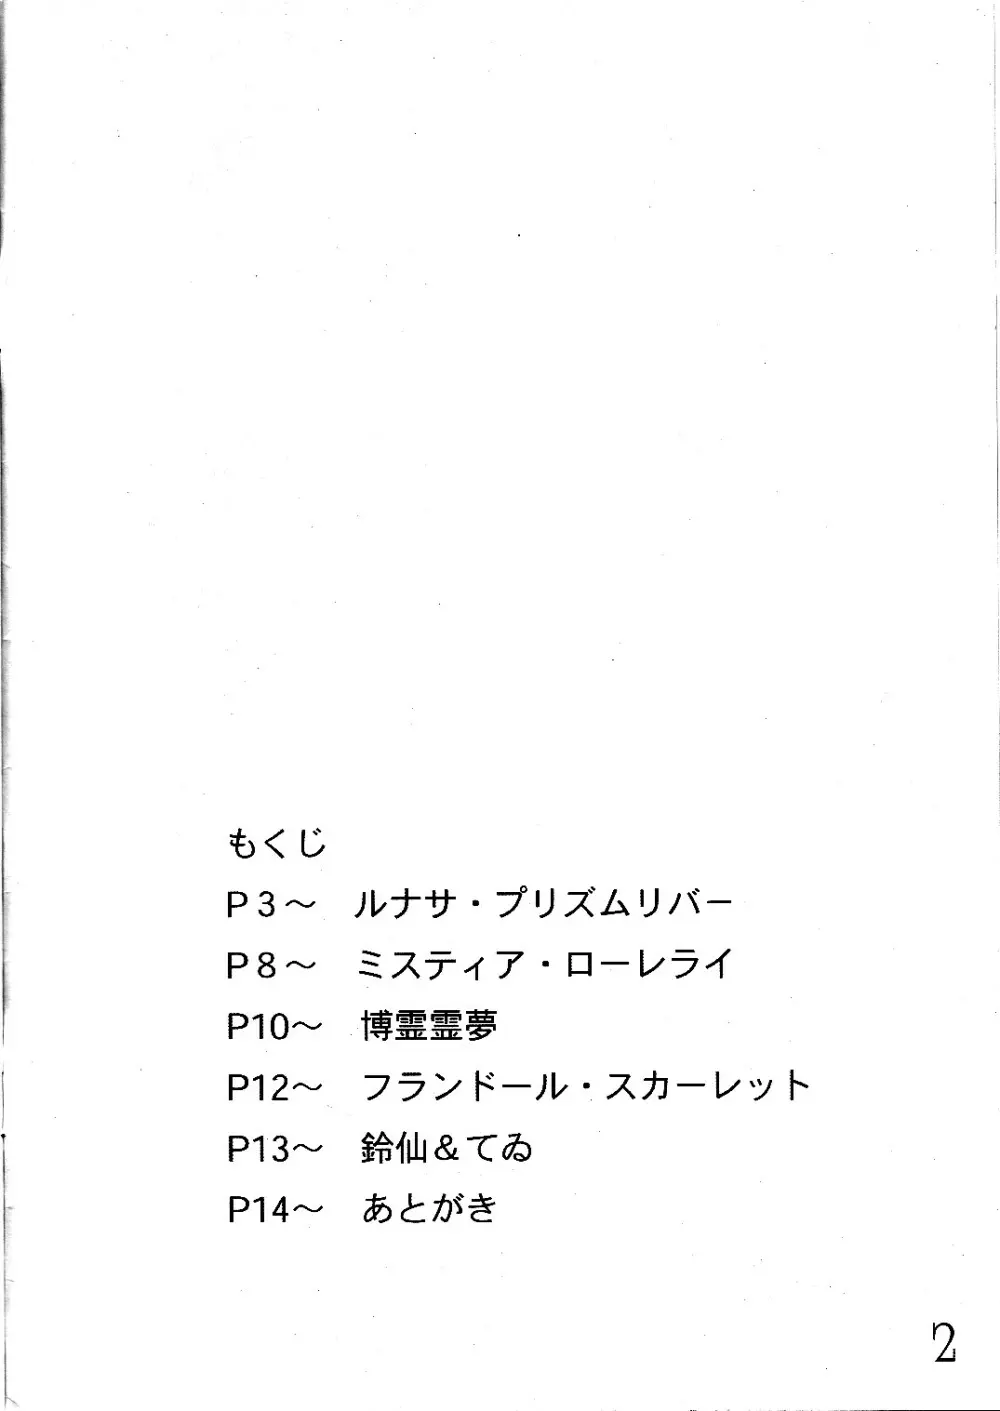 もくじ
P3～　ルナサ・プリズムリバー
P8～　ミスティア・ローレライ
P10～　博霊霊夢
P12～　フランドール・スカーレット
P13～　鈴仙＆てゐ
P14～　あとがき
2